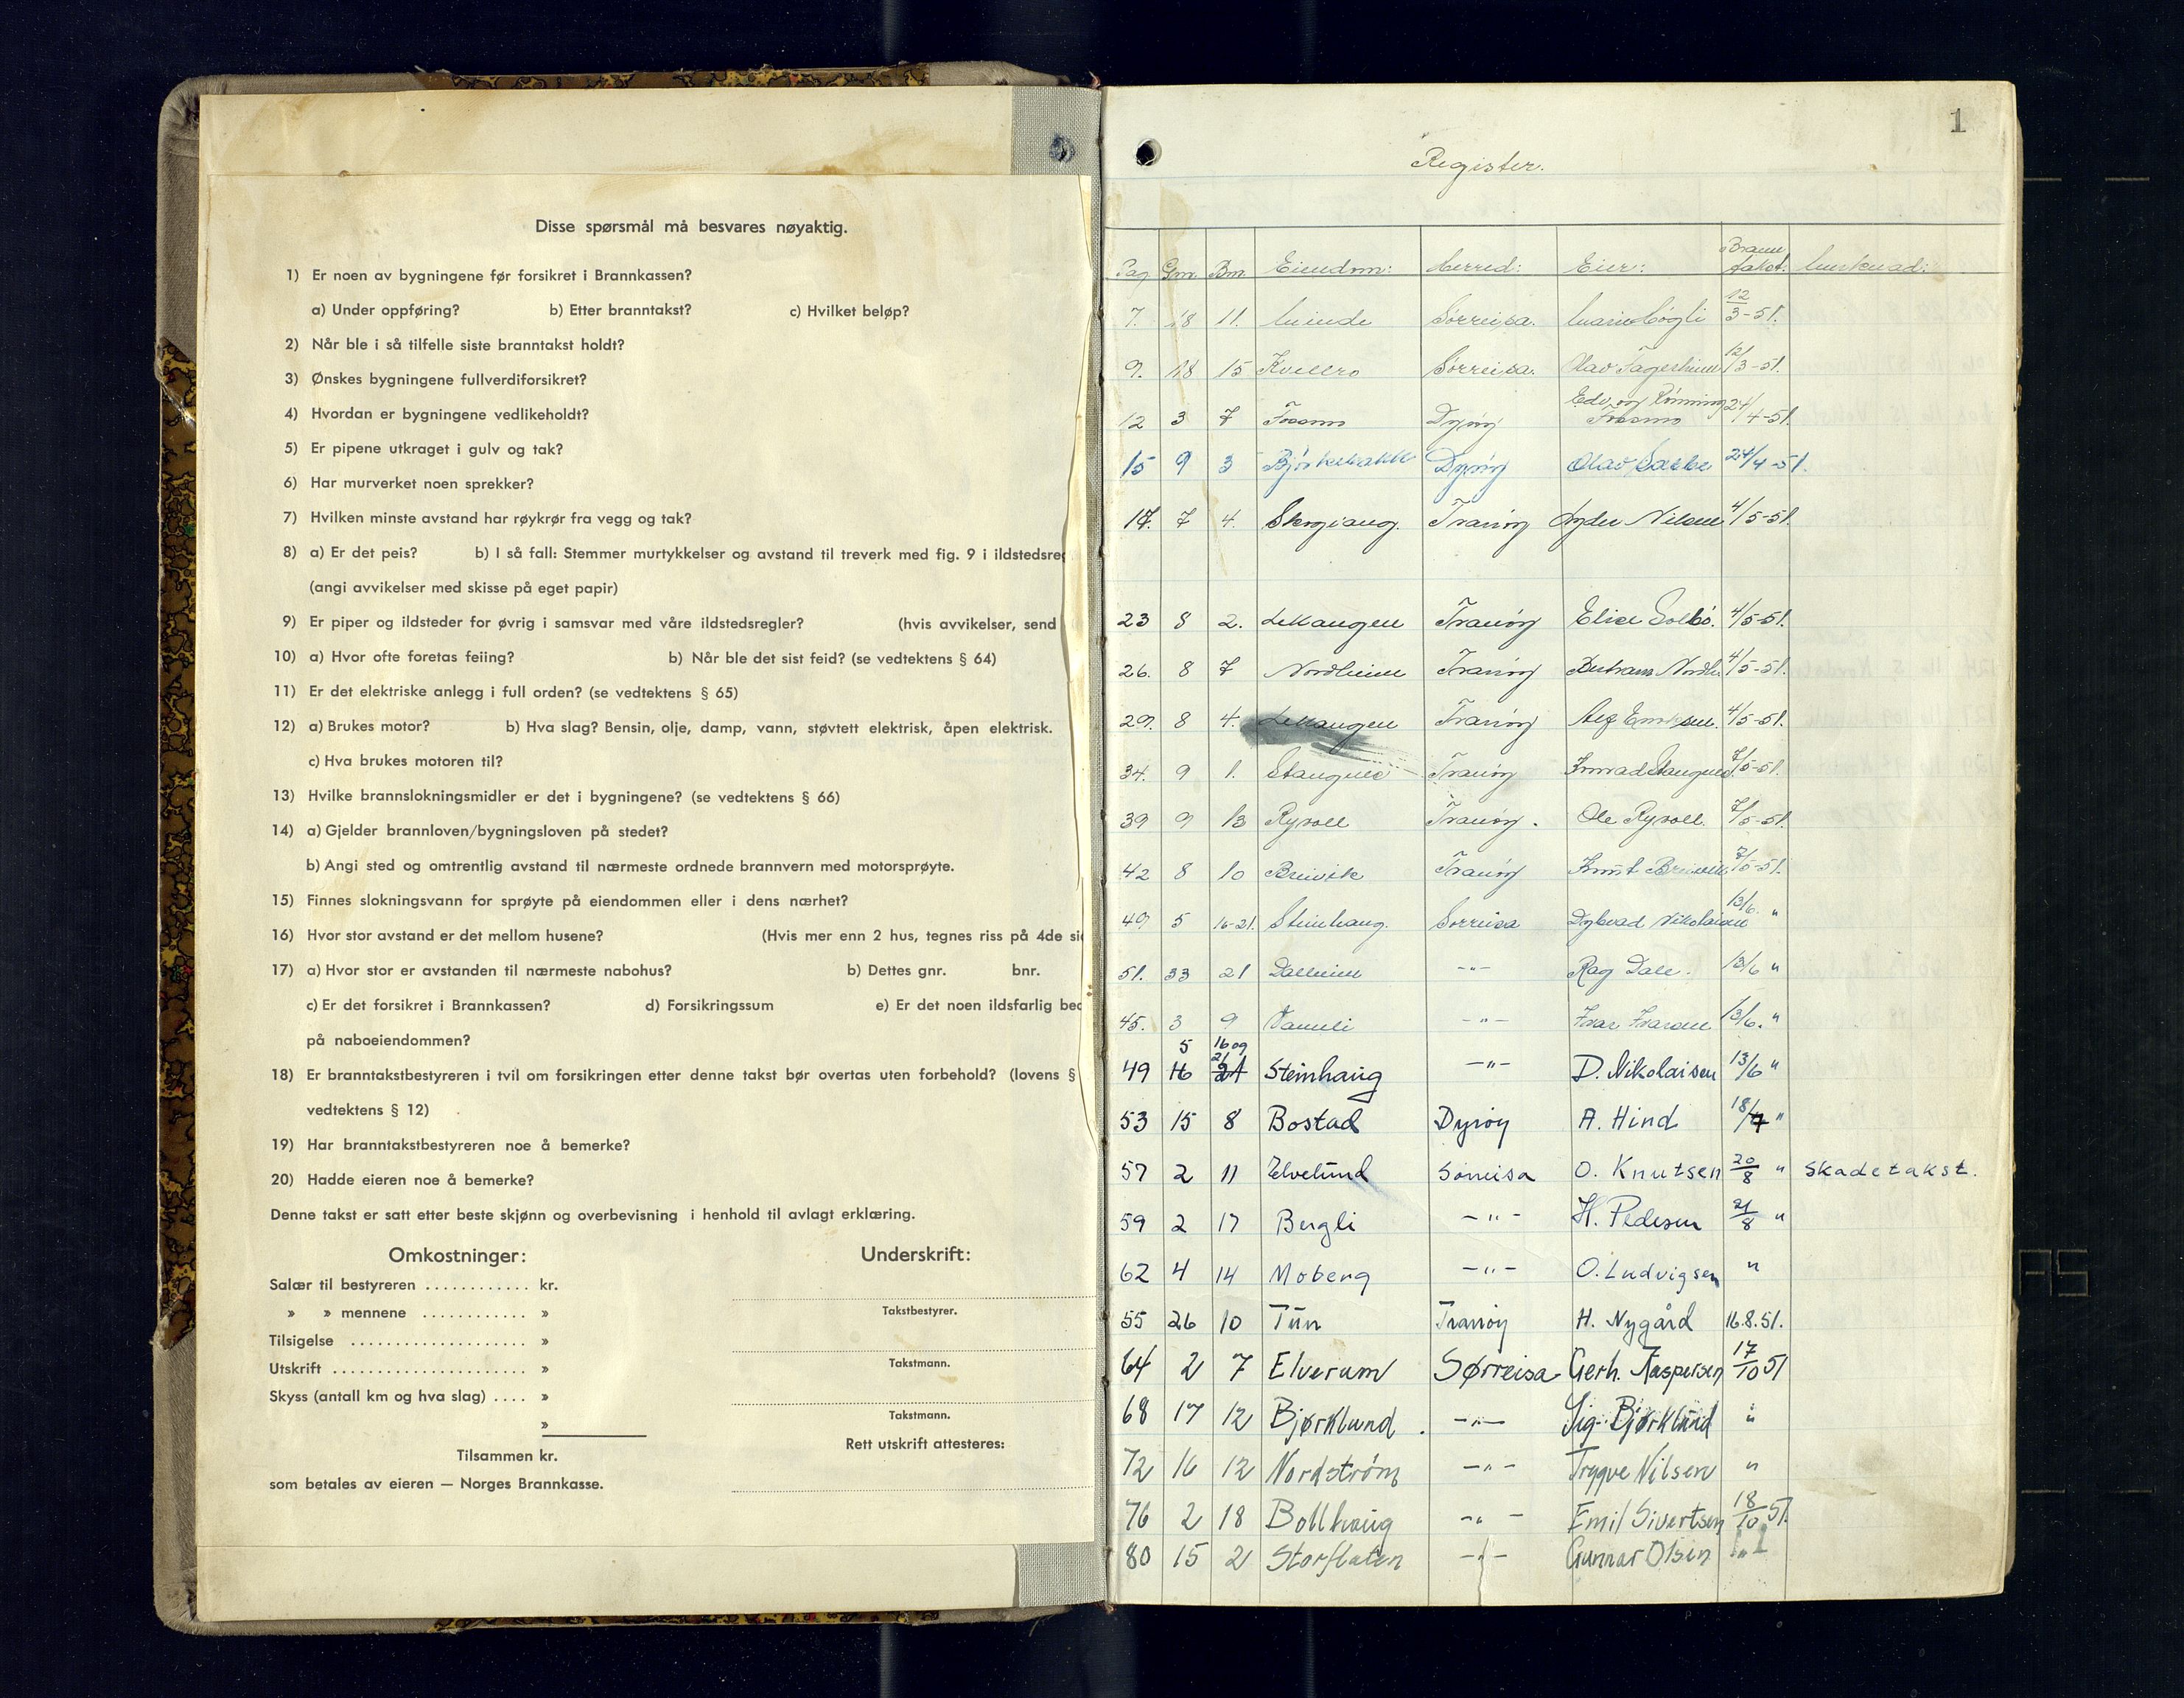 Disse spørsmål må besvares nøyaktig.
1) Er noen av bygningene før forsikret i Brannkassen?
a) Under oppføring? b) Etter branntakst? c) Hvilket beløp?
2) Når ble i så tilfelle siste branntakst holdt?
3) Ønskes bygningene fullverdiforsikret?
4) Hvordan er bygningene vedlikeholdt?
5) Er pipene utkraget i gulv og tak?
6) Har murverket noen sprekker?
7) Hvilken minste avstand har røykrør fra vegg og tak?
8) a) Er det peis? b) I så fall: Stemmer murtykkelser og avstand til treverk med fig. 9 i ildstedsreg
(angi avvikelser med skisse på eget papir)
9) Er piper og ildsteder for øvrig i samsvar med våre ildstedsregler? (hvis avvikelser, send
10) a) Hvor ofte foretas feiing? b) Når ble det sist feid? (se vedtektens § 64)
11) Er det elektriske anlegg i full orden? (se vedtektens § 65)
12) a) Brukes motor? b) Hva slag? Bensin, olje, damp, vann, støvtett elektrisk, åpen elektrisk.
c) Hva brukes motoren til?
13) Hvilke brannslokningsmidler er det i bygningene? (se vedtektens § 66)
14) a) Gjelder brannloven/bygningsloven på stedet?
b) Angi sted og omtrentlig avstand til nærmeste ordnede brannvern med motorsprøyte.
15) Finnes slokningsvann for sprøyte på eiendommen eller i dens nærhet?
16) Hvor stor avstand er det mellom husene? (Hvis mer enn 2 hus, tegnes riss på 4de si
17) a) Hvor stor er avstanden til nærmeste nabohus? b) Dettes gnr. bnr.
c) Er det forsikret i Brannkassen? d) Forsikringssum e) Er det noen ildsfarlig bed
på naboeiendommen?
18) Er branntakstbestyreren i tvil om forsikringen etter denne takst bør overtas uten forbehold? (lovens §
vedtektens § 12)
19) Har branntakstbestyreren noe å bemerke?
20) Hadde eieren noe å bemerke?
Denne takst er satt etter beste skjønn og overbevisning i henhold til avlagt erklæring.
Omkostninger: Underskrift:
Salær til bestyreren ............ kr.
» » mennene ............ »
Takstbestyrer.
Tilsigelse ..................... »
Utskrift ....................... »
Takstmann.
Skyss (antall km og hva slag) .... »
»
Takstmann.
Tilsammen kr.
Rett utskrift attesteres:
som betales av eieren — Norges Brannkasse.
1
Register.
Pag. Gnr. Bnr. Eiendom: Herred: Eier: Brann takst.
7. 18 11. Sørreisa. 12/3-51.
9. 18 15 Kvellro Sørreisa. Olav 12/3-51.
12 3 7 Dyrøy Edv. og Rønning 24/4-51.
15 9 3 Bjørkebakk Dyrøy Olav 24/4-51.
17. 7 4. Tranøy Nilsen 4/5-51.
23 8 2. Tranøy Solbö. 4/5-51.
26. 8 7 Nordheim Tranøy 4/5-51.
29. 8 4. Tranøy 4/5-51.
34. 9 1. Stangnes Tranøy Konrad Stangnes 7/5-51.
39 9 13 Ryvoll Tranøy. Ole Ryvoll. 7/5-51.
42 8 10 Breivik Tranøy Knut Breivik 7/5-51.
49 5 16-21. Steinhaug. Sørreisa Nikolaisen 13/6. "
51. 33 21 Dalheim -"- Rag Dale. 13/6 "
45. 3 9 -"- Ivar Ivarsen 13/6. "
5 16 og
49 21 Steinhaug -"- D. Nikolaisen 13/6 "
53 15 8 Bostad Dyrøy A. Hind 18/7 "
57 2 11 Elvelund Sørreisa O. Knutsen 20/8 " Skadetakst.
59 2 17 Bergli -"- H. Pedersen 21/8 "
62 4 14 Moberg -"- O. Ludvigsen "
55 26 10 Tun Tranøy H. Nygård 16.8.51.
64 2 7 Elverum Sørreisa Gerh. Kaspersen 17/10 51
68 17 12 Bjørklund. -"- Sig. Bjørklund "
72 16 12 Nordström -"- Trygve Nilsen "
76 2 18 Bollhaug -"- Emil Sivertsen 18/10 51.
80 15 2 Storflaten -"- Gunnar Olsen "